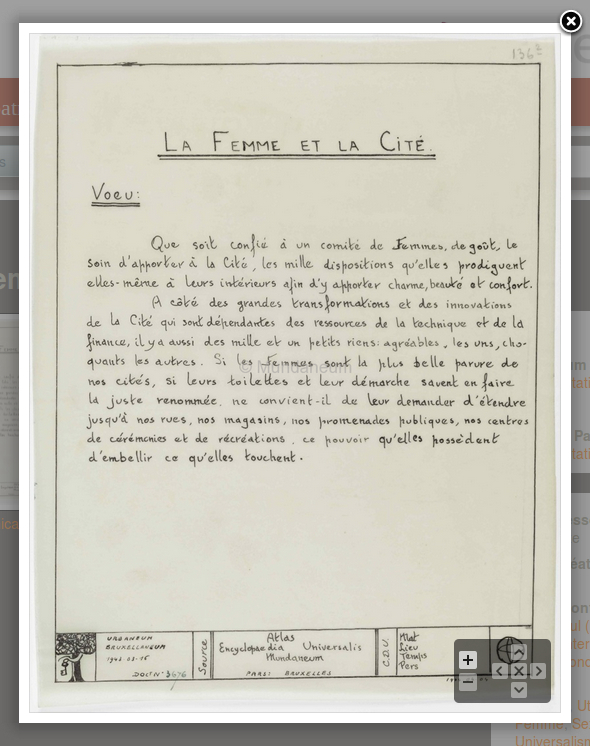 136
LA FEMME ET LA CITÉ.
Voeu:
Que soit confié à un comité de Femmes, de goût, le
soin d'apporter à la Cité, les mille dispositions qu'elles prodiguent
elles-même à leurs intérieurs afin d'y apporter charme, beauté et confort.
A côté des grandes transformations et des innovations
de la Cité qui sont dépendantes des ressources de la technique et de la
finance, il y a aussi des mille et un petits riens: agréables, les uns, cho-
quants les autres. Si les Femmes sont la plus belle parure de
nos cités, si leurs toilettes et leur démarche savent en faire
la juste renommée, ne convient-il de leur demander d'étendre
jusqu'à nos rues, nos magasins, nos promenades publiques, nos centres
de cérémonies et de récréations, ce pouvoir qu'elles possèdent
d'embellir ce qu'elles touchent.
© Mundaneum
URBANEUM
BRUXELLANEUM
DOC. N° 3676
Source
Atlas
Encyclopaedia Universalis
Mundaneum
PARS: BRUXELLES
C.D.U.
Mat
Lieu
Temps
Pers